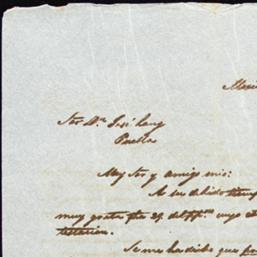 Mexi
Sor Dn José Lang
Puebla
My Sor y amigo mio:
A su debido tiemp
muy grata fha 29 del ppdo cuyo
Se me ha dicho que